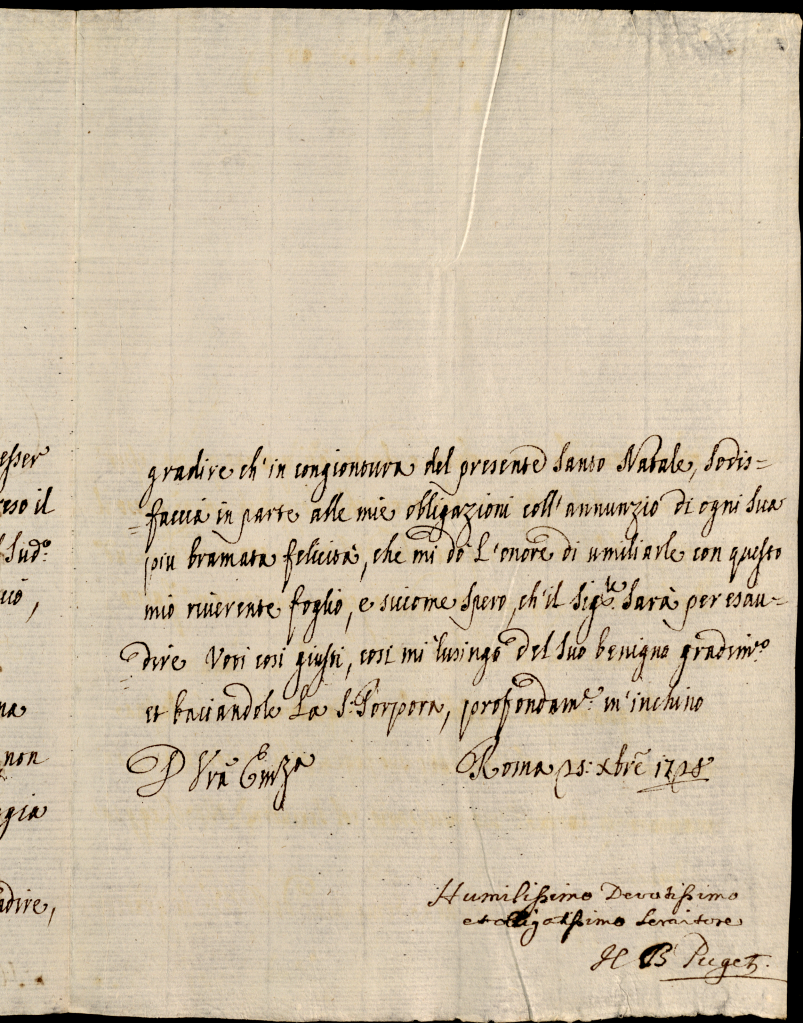 esser
eso il
Sud.º
ciò,
na
non
gia
adire,
gradire ch'in congiontura del presente Santo Natale, Sodis=
=faccia in parte alle mie obligazioni coll'annunzio di ogni Sua
piu bramata felicità, che mi dò L'onore di umiliarle con questo
mio riverente foglio, e siccome Spero, ch'il Sig.re Sarà per esau=
=dire Voti così giusti, così mi lusingo del Suo benigno gradim.to
et baciandole La S. Porpora, profondam.te m'inchino
D Vrã Em̃za
Roma 25: xbrẽ 1728
Humilissimo Devotissimo
et obligatissimo Servitore
H B Puget.